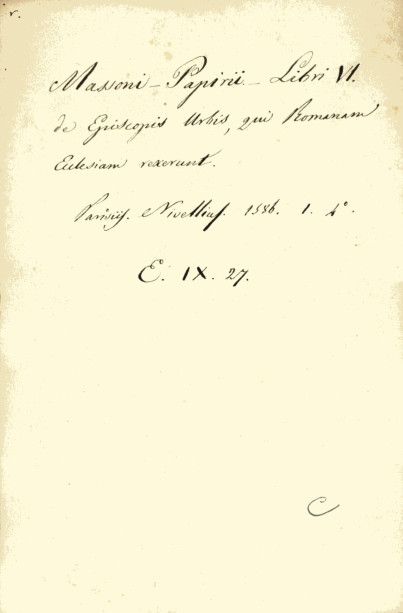 r.
Massoni - Papirii - Libri VI.
de Episcopis Urbis, qui Romanam
Ecclesiam rexerunt.
Parisiis. Nivellius. 1586. 1. 4°.
E. IX. 27.
C